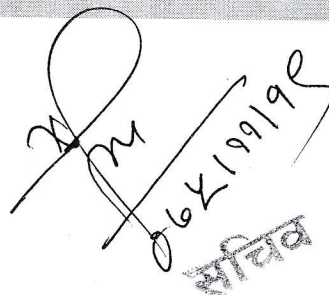 ०७५।११।१९
सचिव